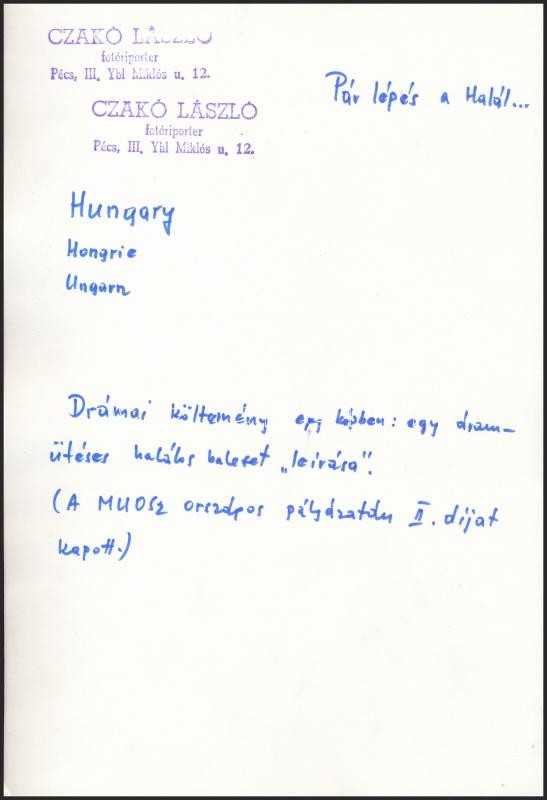 CZAKÓ LÁSZLÓ
fotóriporter
Pécs, III. Ybl Miklós u. 12.
CZAKÓ LÁSZLÓ
fotóriporter
Pécs, III. Ybl Miklós u. 12.
Pár lépés a Halál...
Hungary
Hongrie
Ungarn
Drámai költemény egy képben: egy áram-
ütéses halálos baleset „leírása".
(A MUOSZ országos pályázatán II. díjat
kapott.)